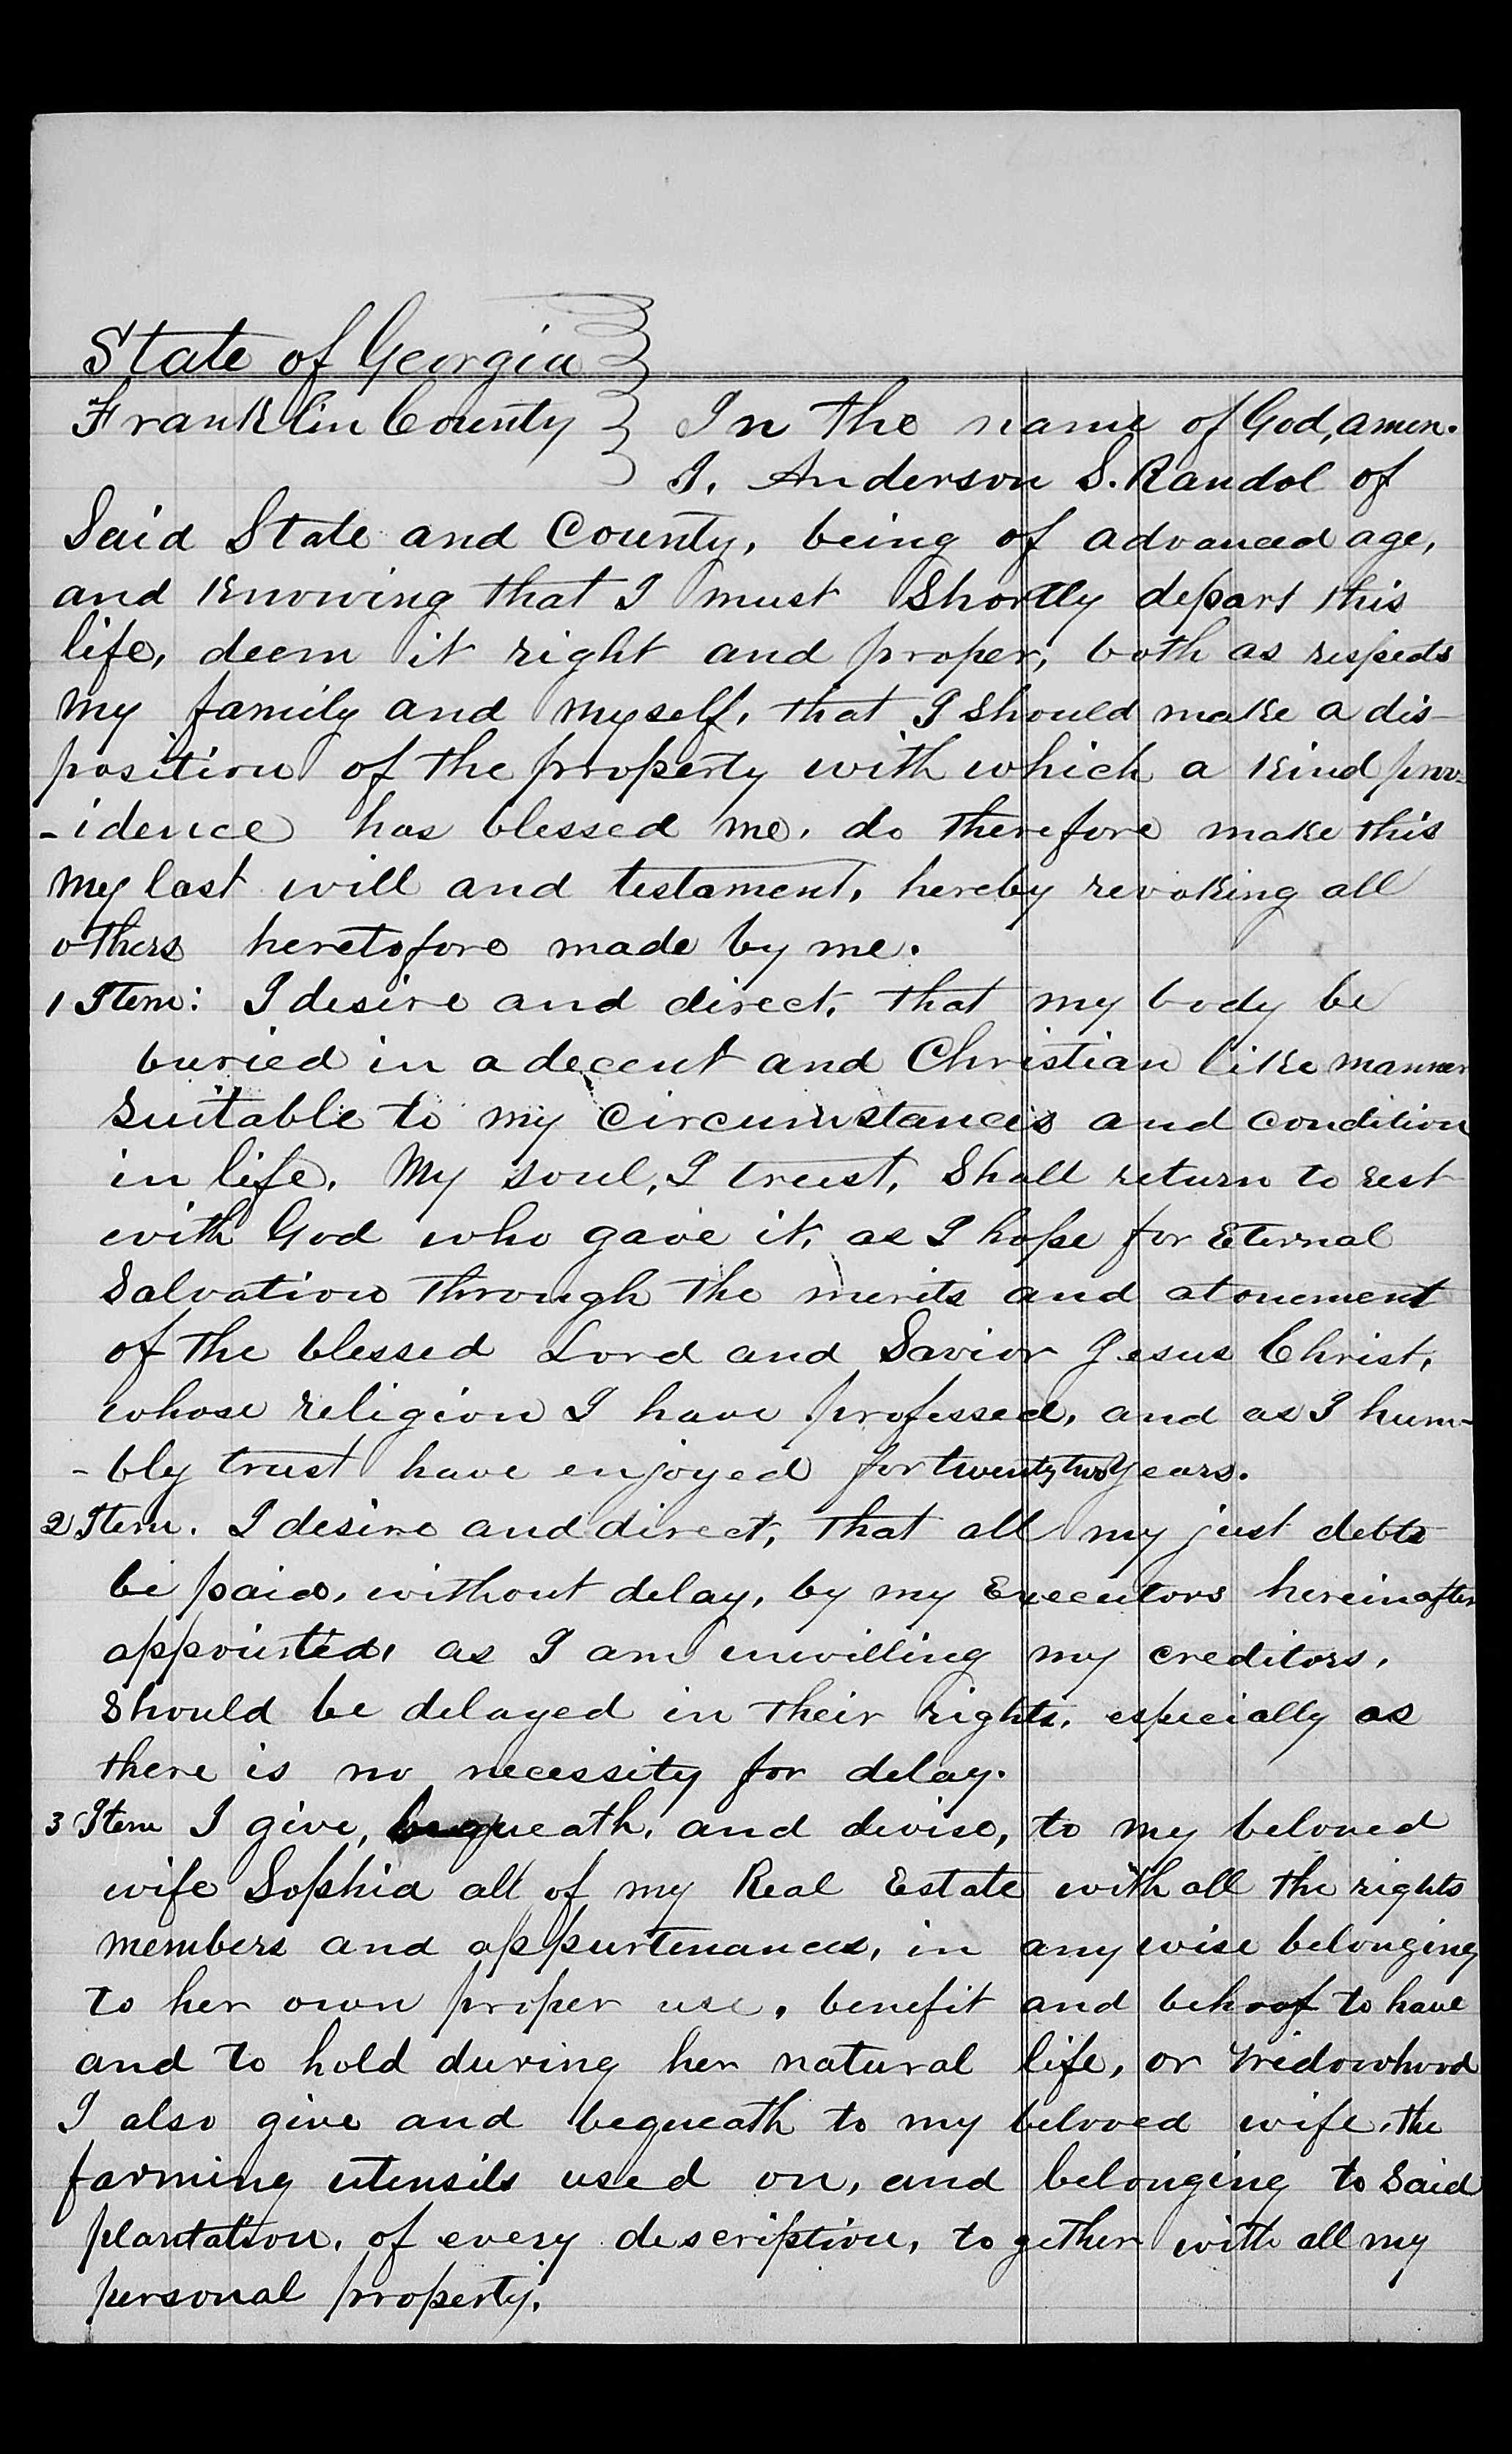 State of Georgia
Franklin County } In the name of God, amen.
I, Anderson S. Randol of
Said State and County, being of advanced age,
and Knowing that I must Shortly depart this
life, deem it right and proper, both as respects
my family and myself, that I Should make a dis-
position of the property with which a Kind prov-
-idence has blessed me, do therefore make this
my last will and testament, hereby revoking all
others heretofore made by me.
1 Item: I desire and direct, that my body be
buried in a decent and Christian like manner
Suitable to my Circumstances and condition
in life, My soul, I trust, Shall return to rest
with God who gave it, as I hope for Eternal
Salvation through the merits and atonement
of the blessed Lord and Savior Jesus Christ,
whose religion I have professed, and as I hum-
-bly trust have enjoyed for twenty two years.
2 Item. I desire and direct, that all my just debts
be paid, without delay, by my Executors hereinafter
appointed, as I am unwilling my creditors,
Should be delayed in their rights, especially as
there is no necessity for delay.
3 Item I give, bequeath, and devise, to my beloved
wife Sophia all of my Real Estate with all the rights
members and appurtenances, in any wise belonging
to her own proper use, benefit and behoof to have
and to hold during her natural life, or Widowhood
I also give and bequeath to my beloved wife, the
farming utensils used on, and belonging to Said
plantation, of every description, together with all my
personal property.